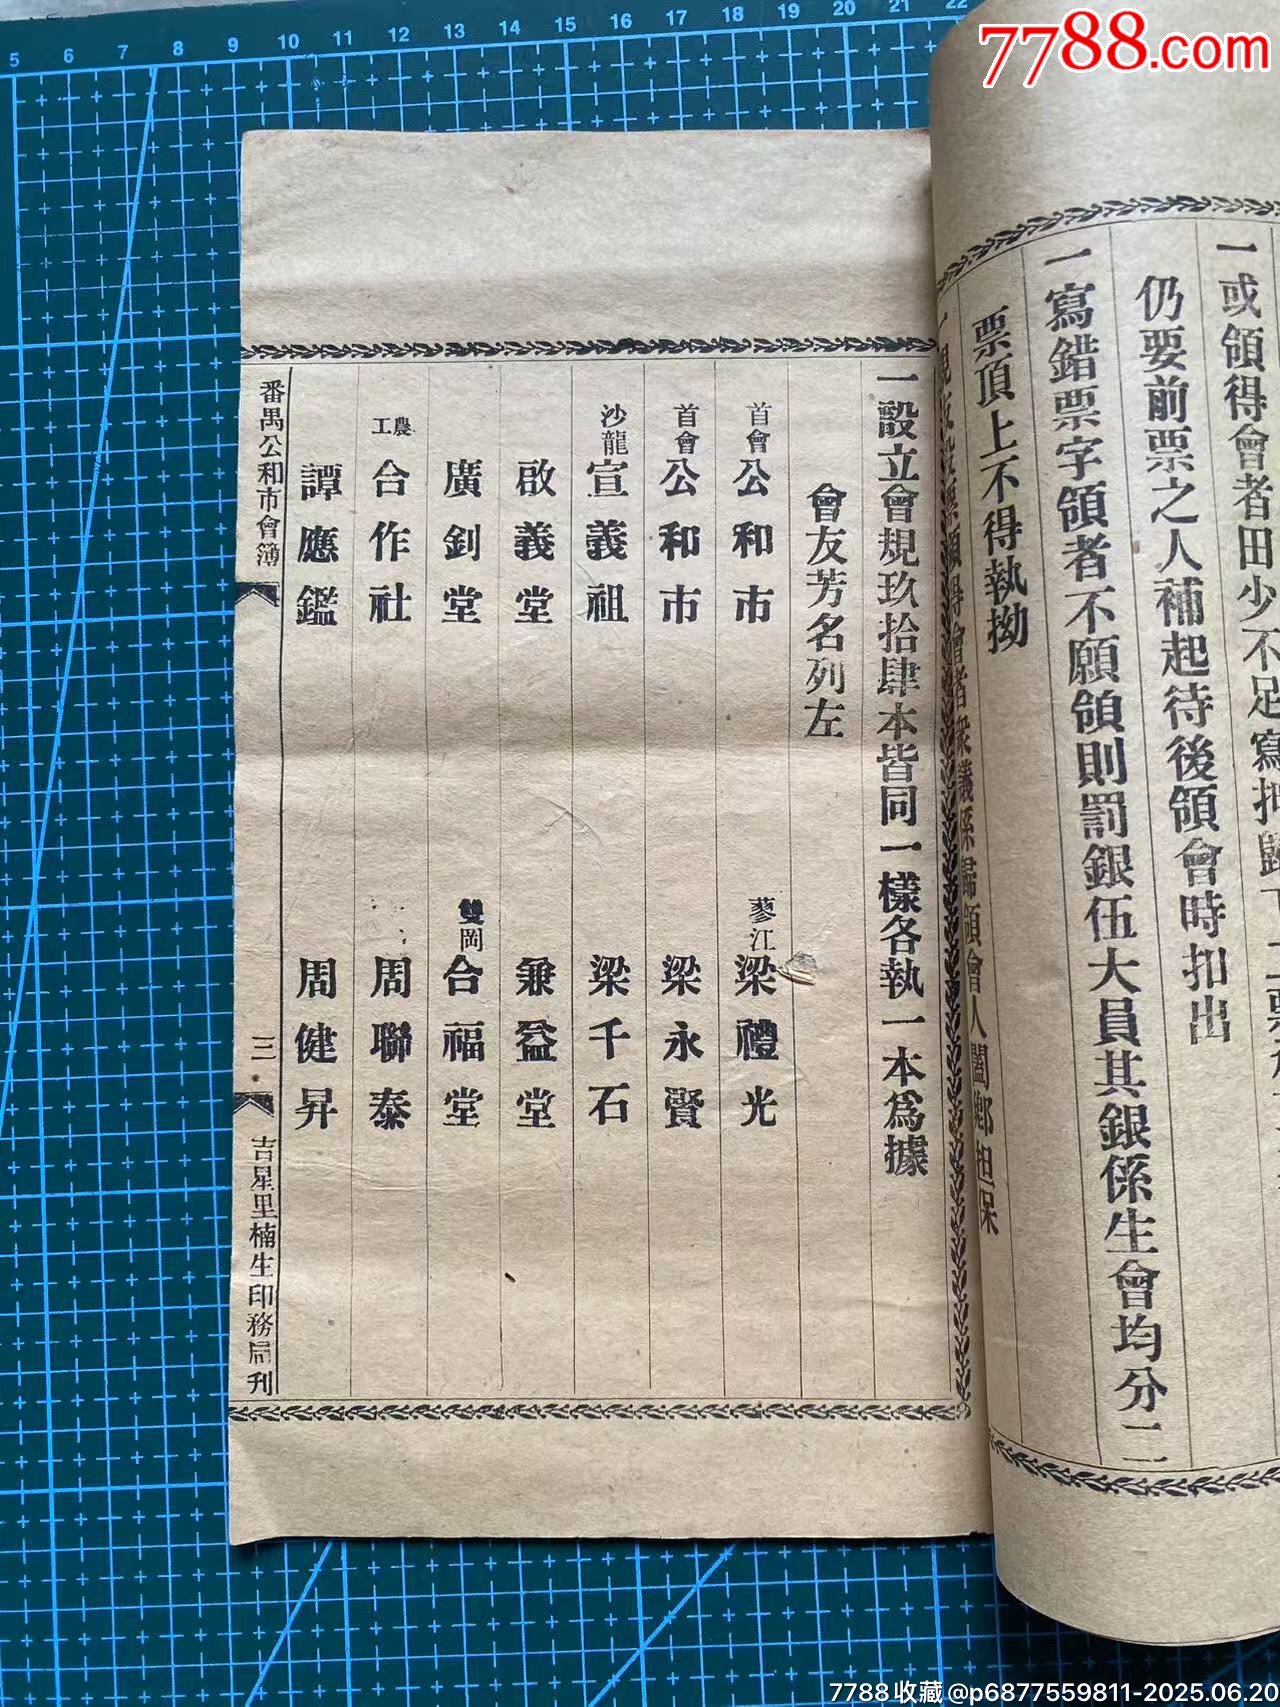 5 6 7 8 9 10 11 12 13 14 15 16 17 18 19 20 21 22
7788.com
一或領得會者田少不足寫
仍要前票之人補起待後領會時扣出
一寫錯票字領者不願領則罰銀伍大員其銀係生會均分
票頂上不得執拗
票領得會者衆議係歸領會人闔鄉担保
一設立會規玖拾肆本皆同一樣各執一本爲據
會友芳名列左
首會公和市 蓼江梁禮光
首會公和市 梁永賢
沙龍宣義祖 梁千石
啟義堂 兼益堂
廣釗堂 雙岡合福堂
農工合作社 周聯泰
譚應鑑 周健昇
番禺公和市會簿 三 吉星里楠生印務局刊
7788收藏@p6877559811-2025.06.20